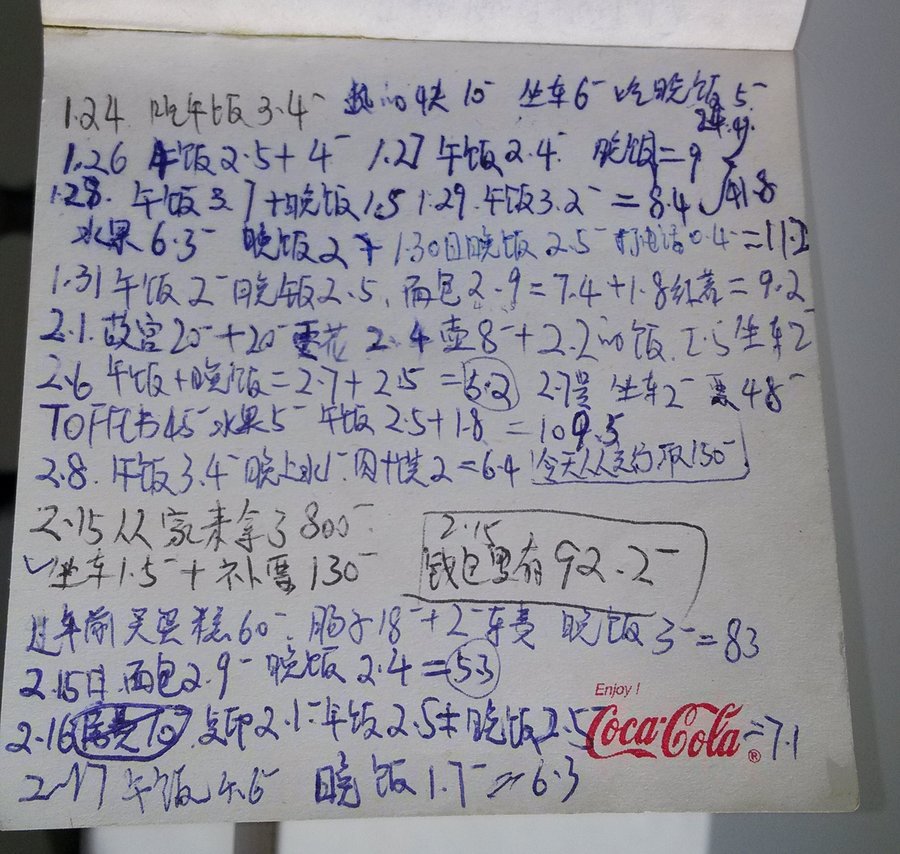 1.24 吃午饭3.4- 热的快10 坐车6- 吃晚饭5-
24.4
1.26 午饭2.5+4- 1.27午饭2.4- 晚饭=9
1.28. 午饭3.7+晚饭1.5 1.29.午饭3.2- =8.4 √41.8
水果6.3- 晚饭2+1.30日晚饭2.5- 打电话0.4-=11.2
1.31午饭2- 晚饭2.5, 面包2.9=7.4+1.8红薯=9.2
2.1. 故宫20-+20- 雪花 2.4 壶8-+2.2的饭. 2.5坐车2-
2.6 午饭+晚饭=2.7+2.5=5.2 2.7号 坐车2- 票48-
TOFFL书45- 水果5- 午饭2.5+1.8=109.5
2.8. 午饭3.4- 晚上水1- 2=6.4 今天从支行取150-
2.15从家来拿了800-
2.15
坐车1.5-+补票130- 钱包里有92.2-
过年前买蛋糕60-. 肠子18-+2-车费 晚饭3-=83
2.15日.面包2.9- 晚饭2.4=53
2.16 复印2.1-午饭2.5+晚饭2.5-
Enjoy!
Coca-Cola® =7.1
2.17 午饭4.6- 晚饭1.7-=6.3